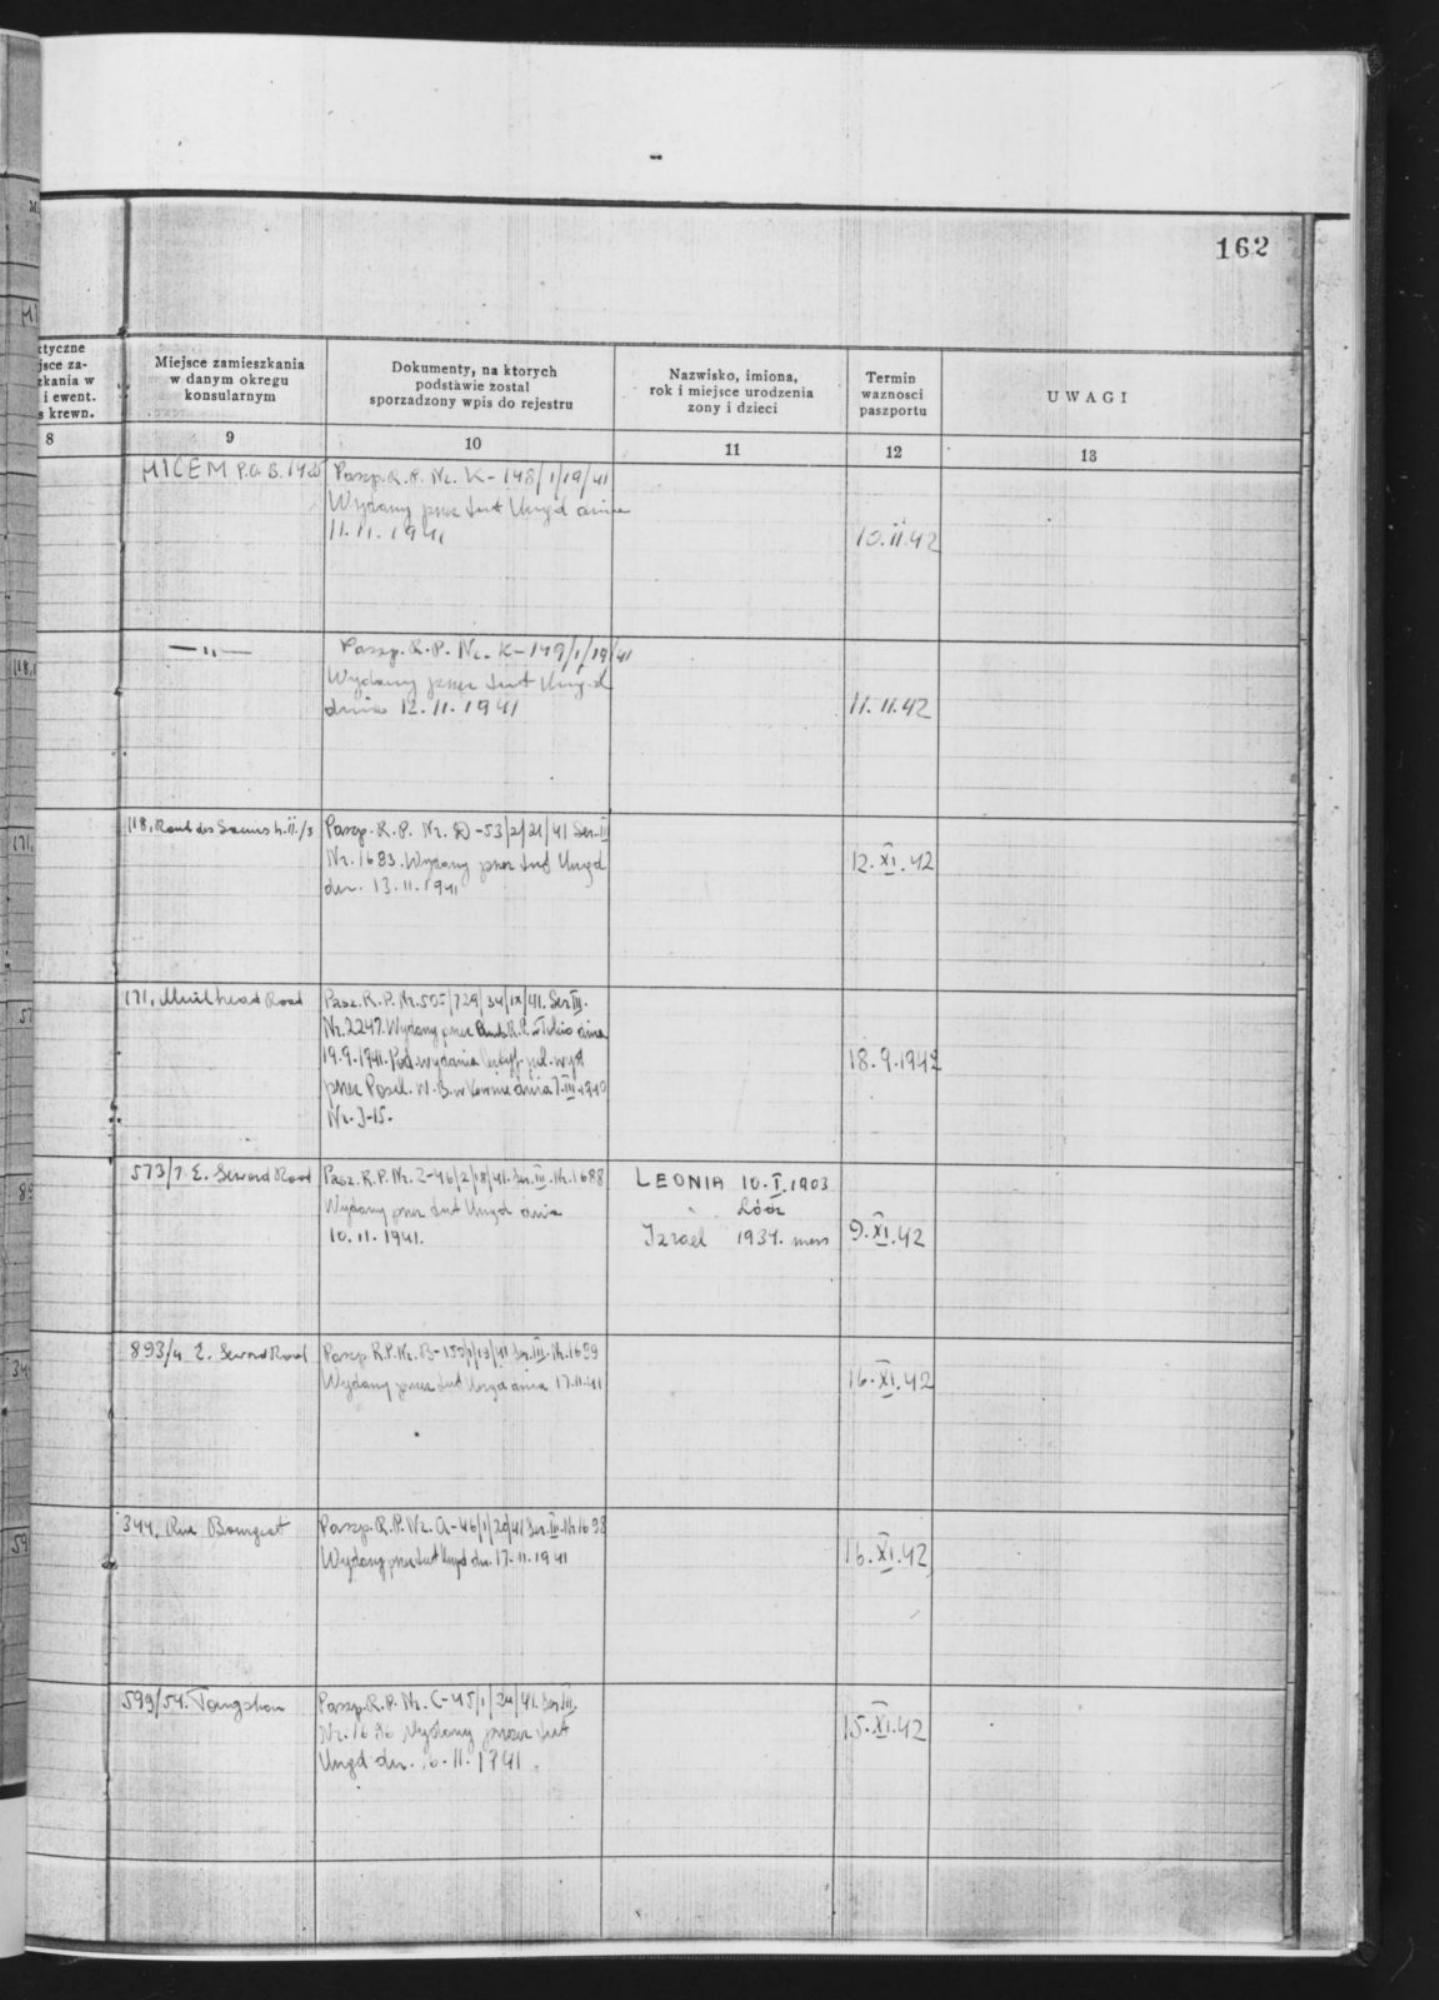 162
ktyczne
jsce za-
zkania w
i ewent.
s krewn.
Miejsce zamieszkania
w danym okregu
konsularnym
Dokumenty, na ktorych
podstawie zostal
sporzadzony wpis do rejestru
Nazwisko, imiona,
rok i miejsce urodzenia
zony i dzieci
Termin
waznosci
paszportu
UWAGI
8
9
10
11
12
13
HICEM P.O.B. 1425
Paszp. R.P. Nr. K-148/1/19/41
Wydany przez tut Urząd dnia
11.11.1941
10.11.42
—„—
Paszp. R.P. Nr. K-149/1/19/41
Wydany przez tut Urząd
dnia 12.11.1941
11.11.42
118, des
Paszp. R.P. Nr. D-53/2/21/41 Ser. III
Nr. 1683. Wydany przez tut Urząd
dn. 13.11.1941
12.XI.42
171, Muirhead Road
Pasz. R.P. Nr. 505/729/34/IX/41. Ser III.
Nr. 2247. Wydany przez Amb. R.P. w Tokio dnia
19.9.1941. Pod. wydania wyd
przez Posel. W.B. w Kownie dnia
Nr. J-15.
18.9.1942
573/7 E. Seward Road
Pasz. R.P. Nr. Z-46/2/18/41. Ser. III. Nr. 1688
Wydany przez tut Urząd dnia
10.11.1941.
LEONIA 10.I.1903
Łódź
Izrael 1934.
9.XI.42
893/4 E. Seward Road
Paszp. R.P. Nr. Ser. III. Nr. 1699
Wydany przez tut Urząd dnia 17.11.41
16.XI.42
344, Rue Bourgeat
Paszp. R.P. Nr. A-46/1/20/41 Ser. III. Nr 1698
Wydany przez tut Urząd dn. 17.11.1941
16.XI.42
599/54. Tongshan
Paszp. R.P. Nr. C-45/1/24/41. Ser III.
Nr. 1696 Wydany przez tut
Urząd dn. 11.1941.
15.XI.42